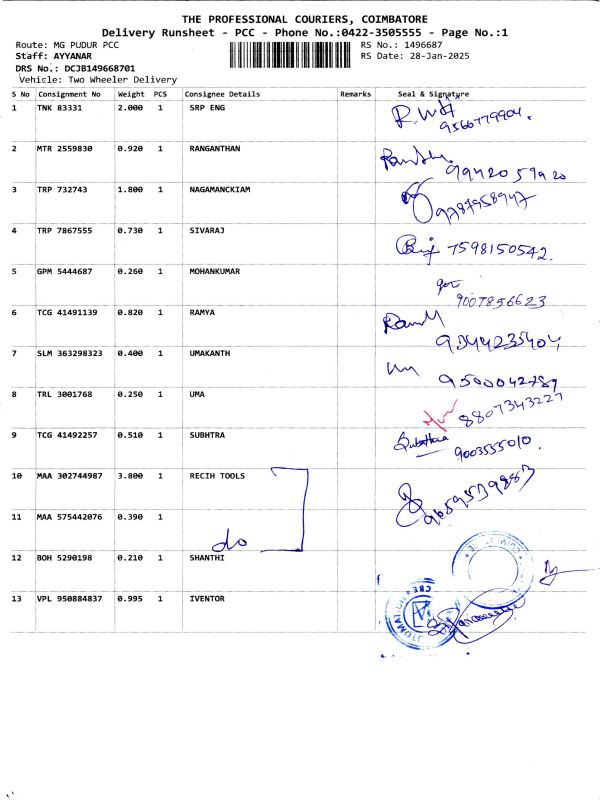 THE PROFESSIONAL COURIERS, COIMBATORE
Delivery Runsheet - PCC - Phone No.:0422-3505555 - Page No.:1
Route: MG PUDUR PCC RS No.: 1496687
Staff: AYYANAR RS Date: 28-Jan-2025
DRS No.: DCJB149668701
Vehicle: Two Wheeler Delivery
S No Consignment No Weight PCS Consignee Details Remarks Seal & Signature
1 TNK 83331 2.000 1 SRP ENG
9566779904.
2 MTR 2559830 0.920 1 RANGANTHAN
9942059920
3 TRP 732743 1.800 1 NAGAMANCKIAM
9787958947
4 TRP 7867555 0.730 1 SIVARAJ 7598150542.
5 GPM 5444687 0.260 1 MOHANKUMAR
9007856623
6 TCG 41491139 0.820 1 RAMYA
9344235404
7 SLM 363298323 0.400 1 UMAKANTH
9500042789
8 TRL 3001768 0.250 1 UMA 8807343227
9 TCG 41492257 0.510 1 SUBHTRA Subathra
9003555010.
10 MAA 302744987 3.800 1 RECIH TOOLS
11 MAA 575442076 0.390 1
do
12 BOH 5290198 0.210 1 SHANTHI
13 VPL 950884837 0.995 1 IVENTOR